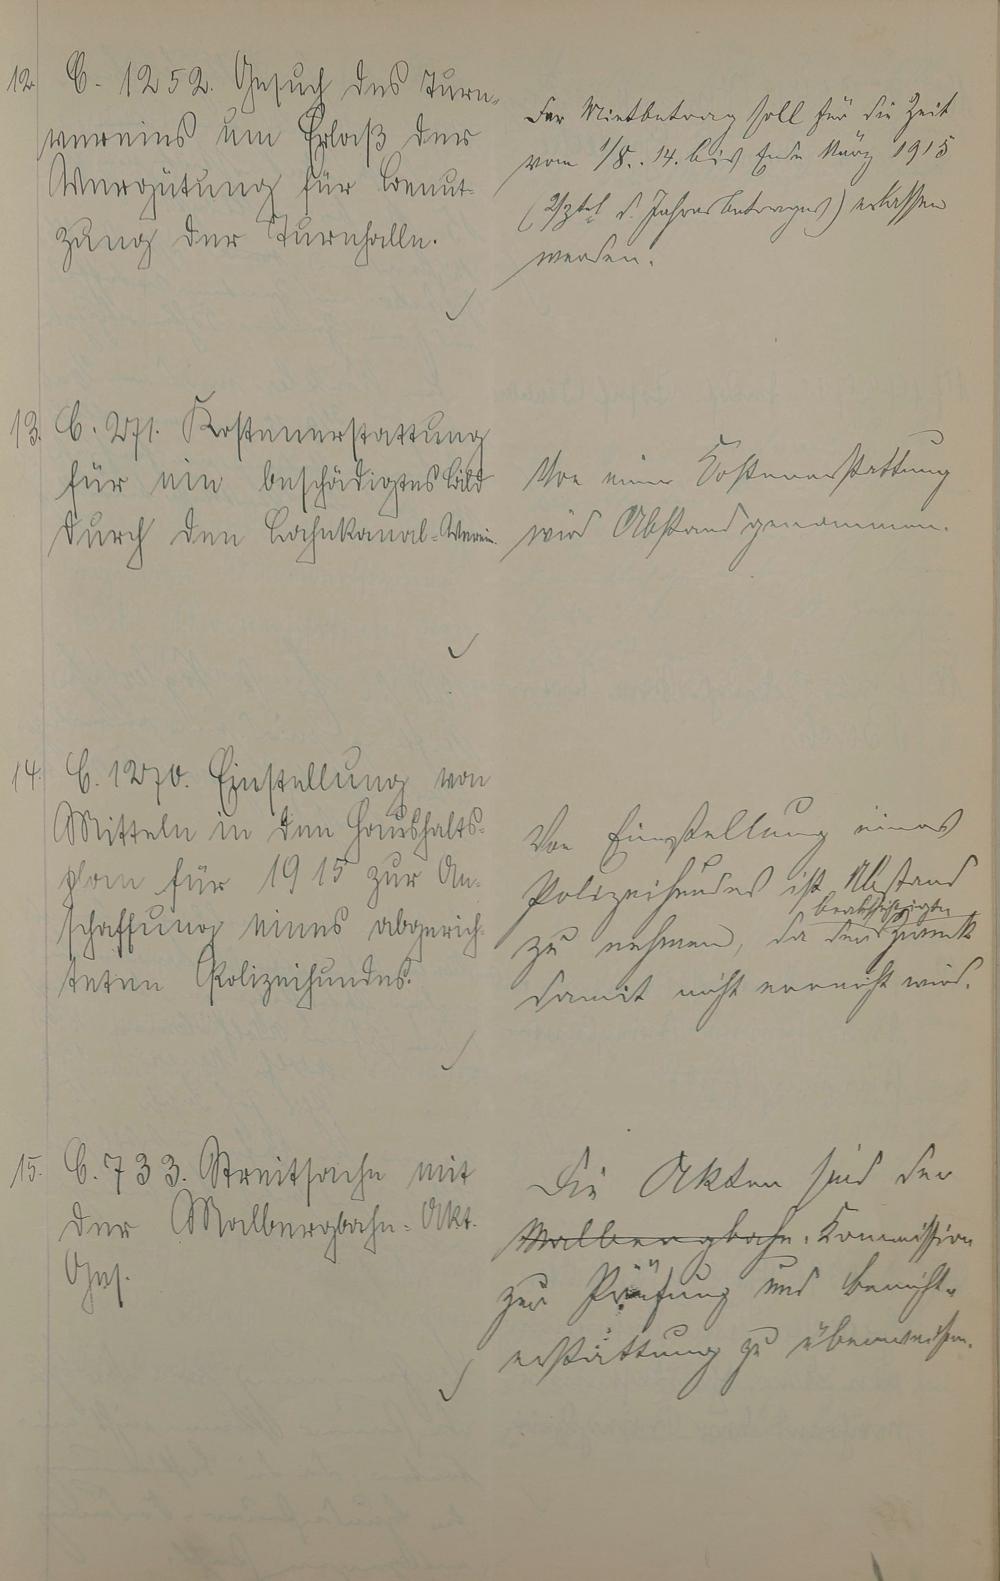 12. C. 1252. Gesuch des Turn-
vereins um Erlaß der
Vergütung für Benut-
zung der Turnhalle.
Der Mietbetrag soll für die Zeit
vom 1/8. 14. bis Ende März 1915
(2/3tel d. Jahresbetrages) erlassen
werden.
13. C. 271. Kostenerstattung
für ein beschädigtes Bild
durch den Lahnkanal-Verein.
Von einer Kostenerstattung
wird Abstand genommen.
14. C. 1270. Einstellung von
Mitteln in den Haushalts-
plan für 1915 zur An-
schaffung eines abgerich-
teten Polizeihundes.
Von Einstellung eines
Polizeihundes ist Abstand
beabsichtigte
zu nehmen, da der Zweck
damit nicht erreicht wird.
15. C. 733. Streitsache mit
der Malbergbahn-Akt.
Ges.
Die Akten sind der
Malbergbahn-Kommission
zur Prüfung und Bericht-
erstattung zu überweisen.